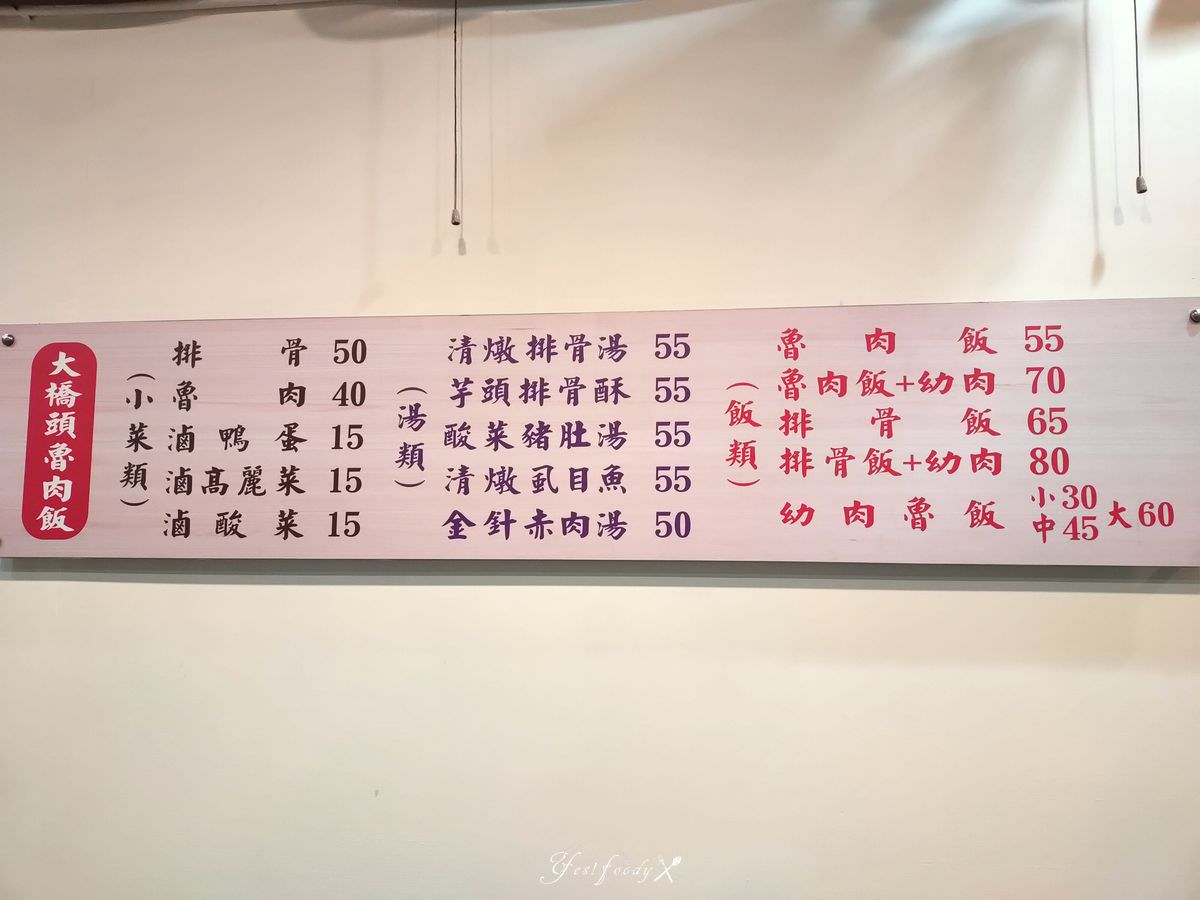 大橋頭魯肉飯
(小菜類)
排骨 50
魯肉 40
滷鴨蛋 15
滷高麗菜 15
滷酸菜 15
(湯類)
清燉排骨湯 55
芋頭排骨酥 55
酸菜豬肚湯 55
清燉虱目魚 55
金針赤肉湯 50
(飯類)
魯肉飯 55
魯肉飯+幼肉 70
排骨飯 65
排骨飯+幼肉 80
幼肉魯飯 小30 中45 大60
Yes!foody